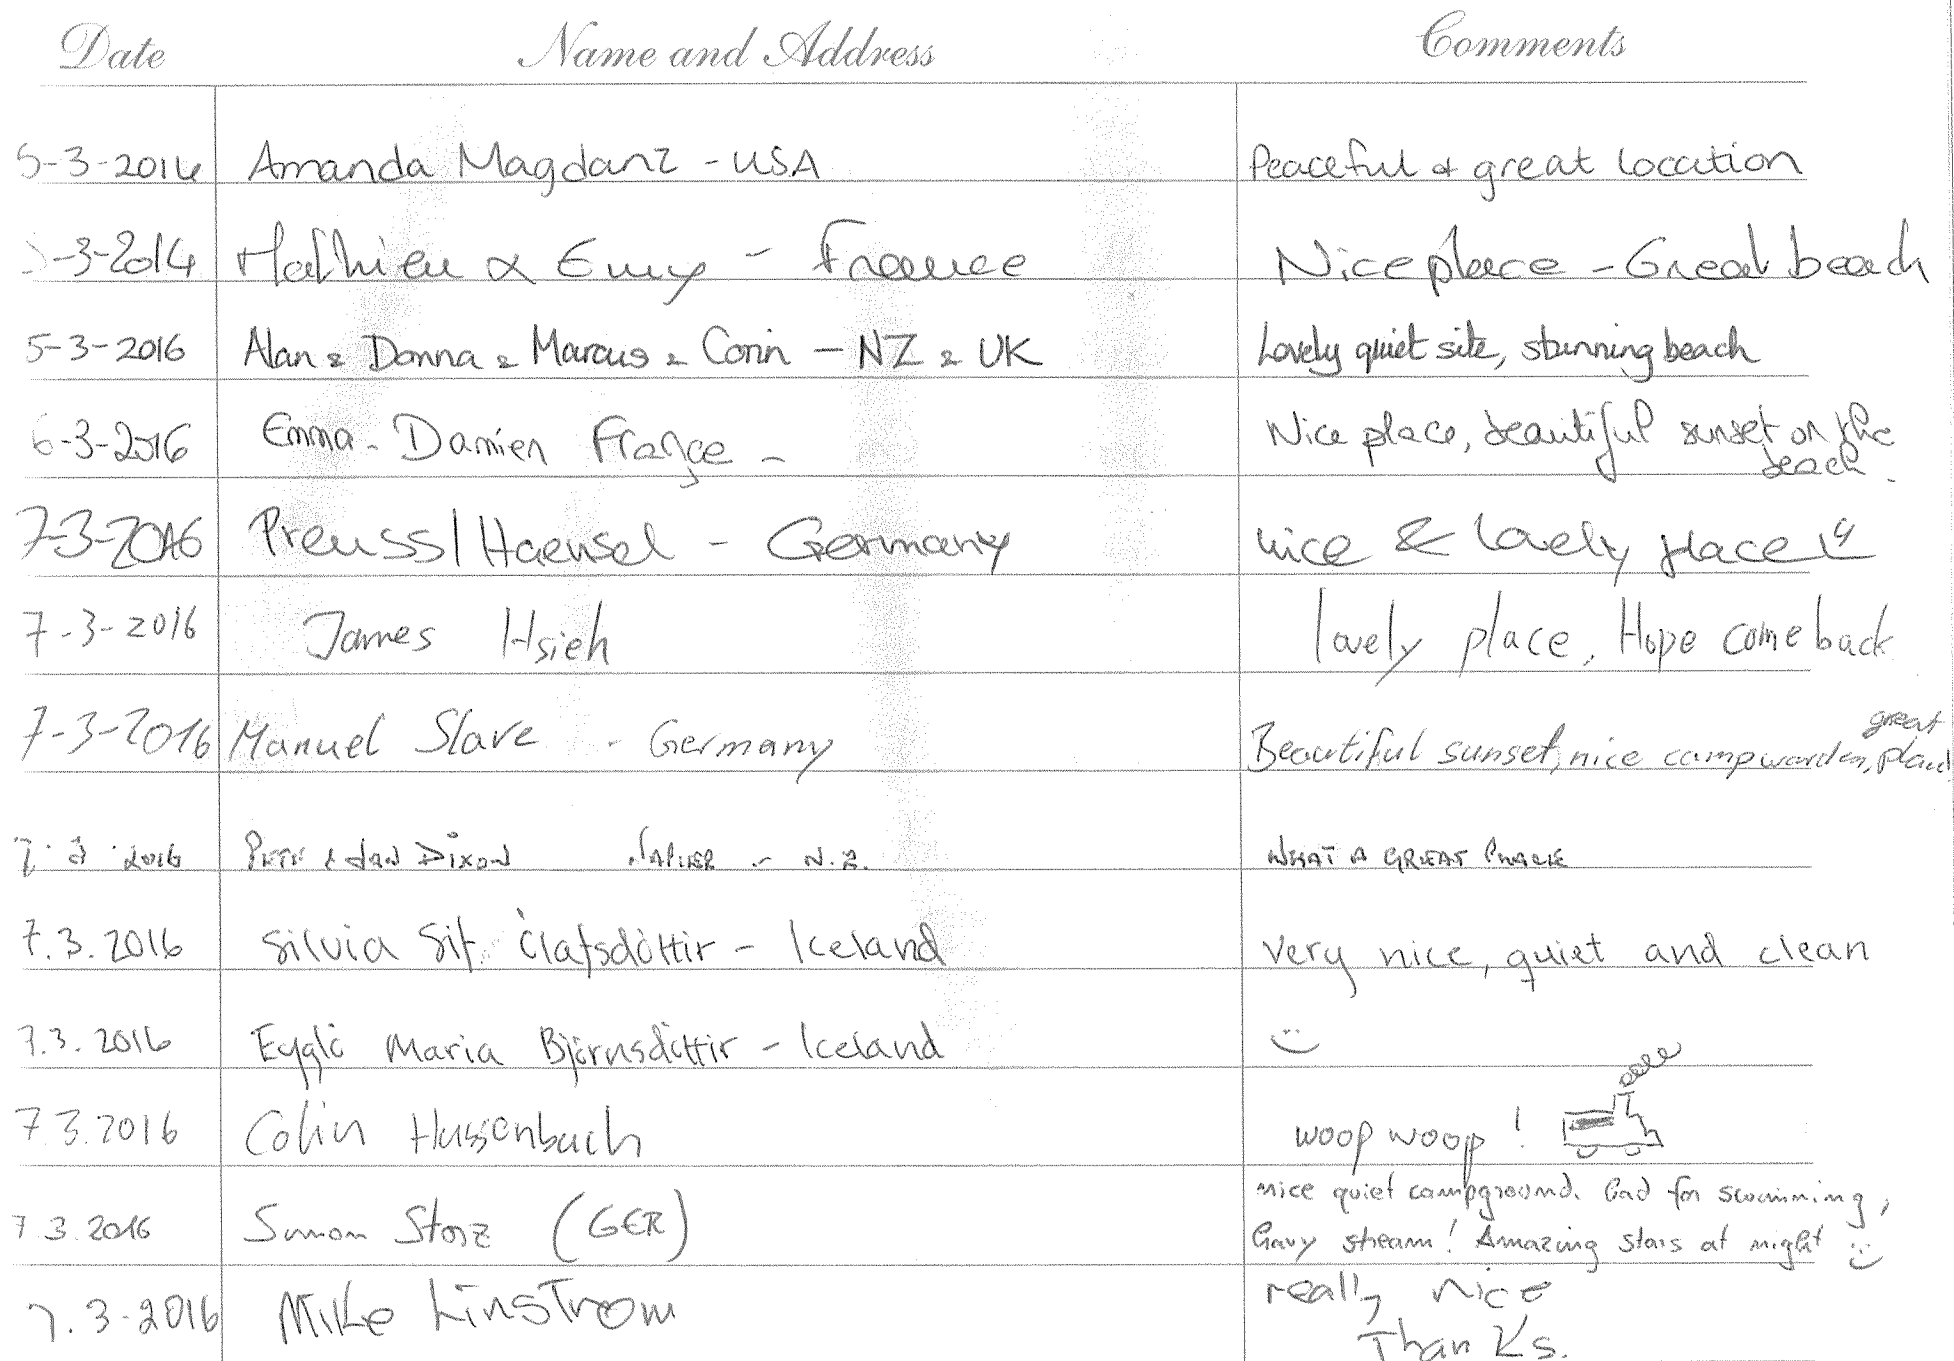 Date Name and Address Comments
5-3-2016 Amanda Magdanz - USA Peaceful & great location
-3-2014 Mathieu & Emy - France Nice place - Great beach
5-3-2016 Alan & Donna & Marcus & Corin - NZ & UK Lovely quiet site, stunning beach
6-3-2016 Emma - Damien France - Nice place, beautiful sunset on the
beach.
7-3-2016 Preuss/Haensel - Germany nice & lovely place
7-3-2016 James Hsieh lovely place, Hope come back
great
7-3-2016 Manuel Slave - Germany Beautiful sunset, nice campwarden,
7.3.2016 Pete & Jan Dixon Napier - N.Z. WHAT A GREAT PLACE
7.3.2016 Silvia Sif Ólafsdóttir - Iceland Very nice, quiet and clean
7.3.2016 Eygló Maria Björnsdóttir - Iceland :)
7.3.2016 Colin Hussenbach woop woop !
nice quiet campground. Bad for swimming,
7.3.2016 Simon Storz (GER) stream! Amazing stars at night :)
really nice
7.3-2016 Mike Linstrom Thanks.